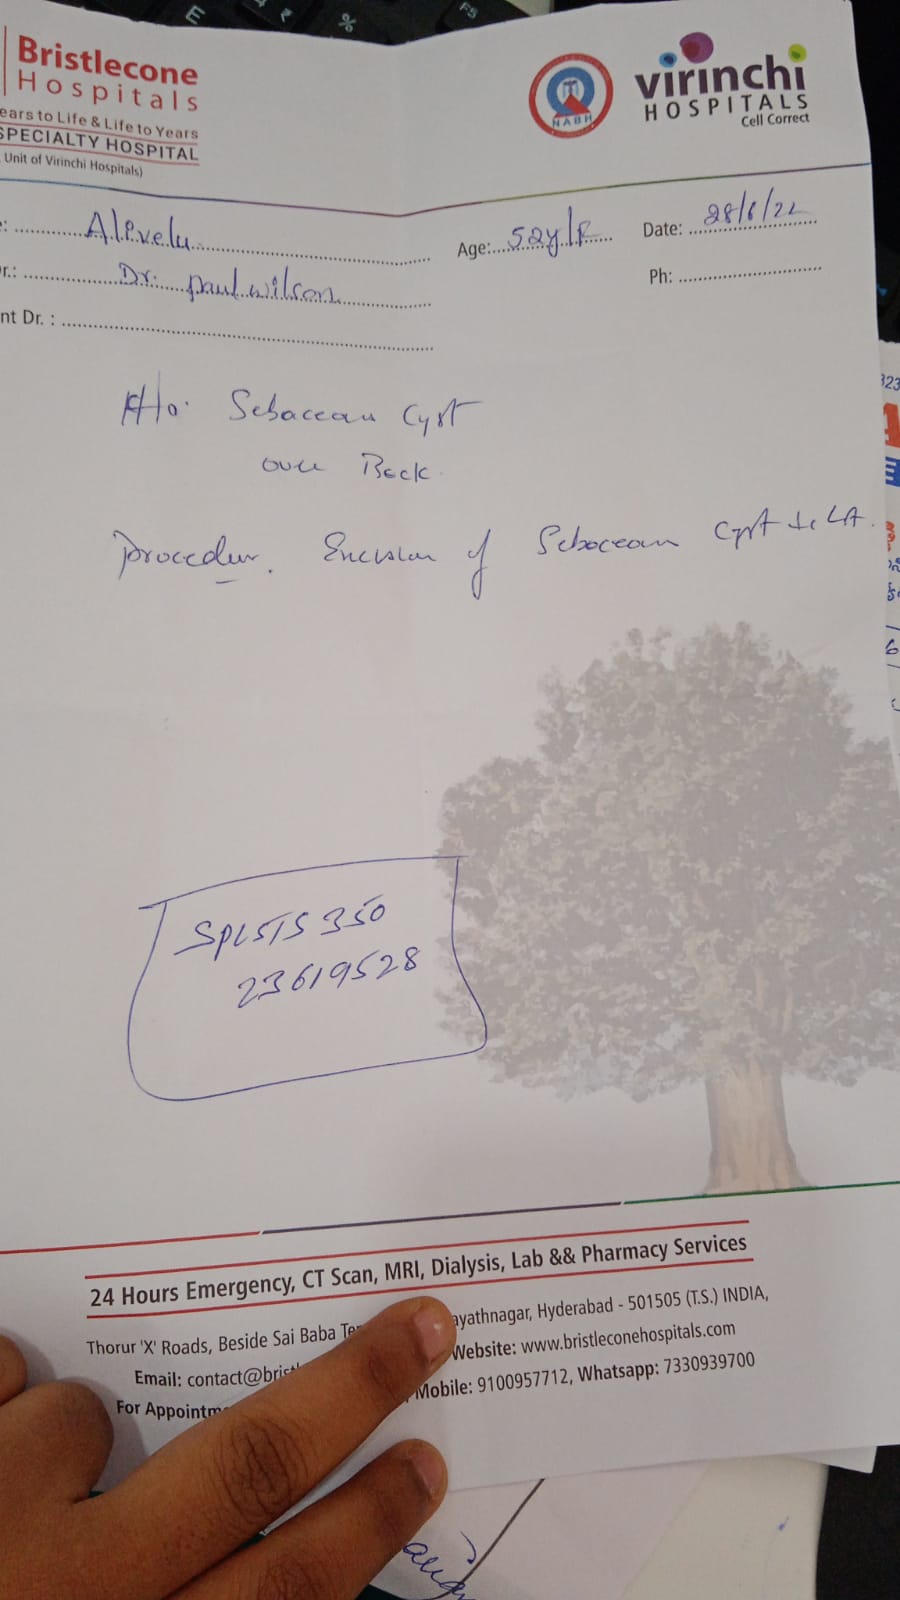 Bristlecone
Hospitals
ears to Life & Life to Years
SPECIALTY HOSPITAL
Unit of Virinchi Hospitals)
NABH
virinchi
HOSPITALS
Cell Correct
Alivelu
Age: 52y/F
Date: 28/6/22
r.: Dr. paul wilson
Ph:
nt Dr. :
H/o. Sebacean Cyst
over Back.
Procedur. Encision of Sebacean Cyst LA.
SPLSTS 350
23619528
24 Hours Emergency, CT Scan, MRI, Dialysis, Lab && Pharmacy Services
Thorur 'X' Roads, Beside Sai Baba Te ayathnagar, Hyderabad - 501505 (T.S.) INDIA,
Email: contact@brist Website: www.bristleconehospitals.com
For Appointm Mobile: 9100957712, Whatsapp: 7330939700